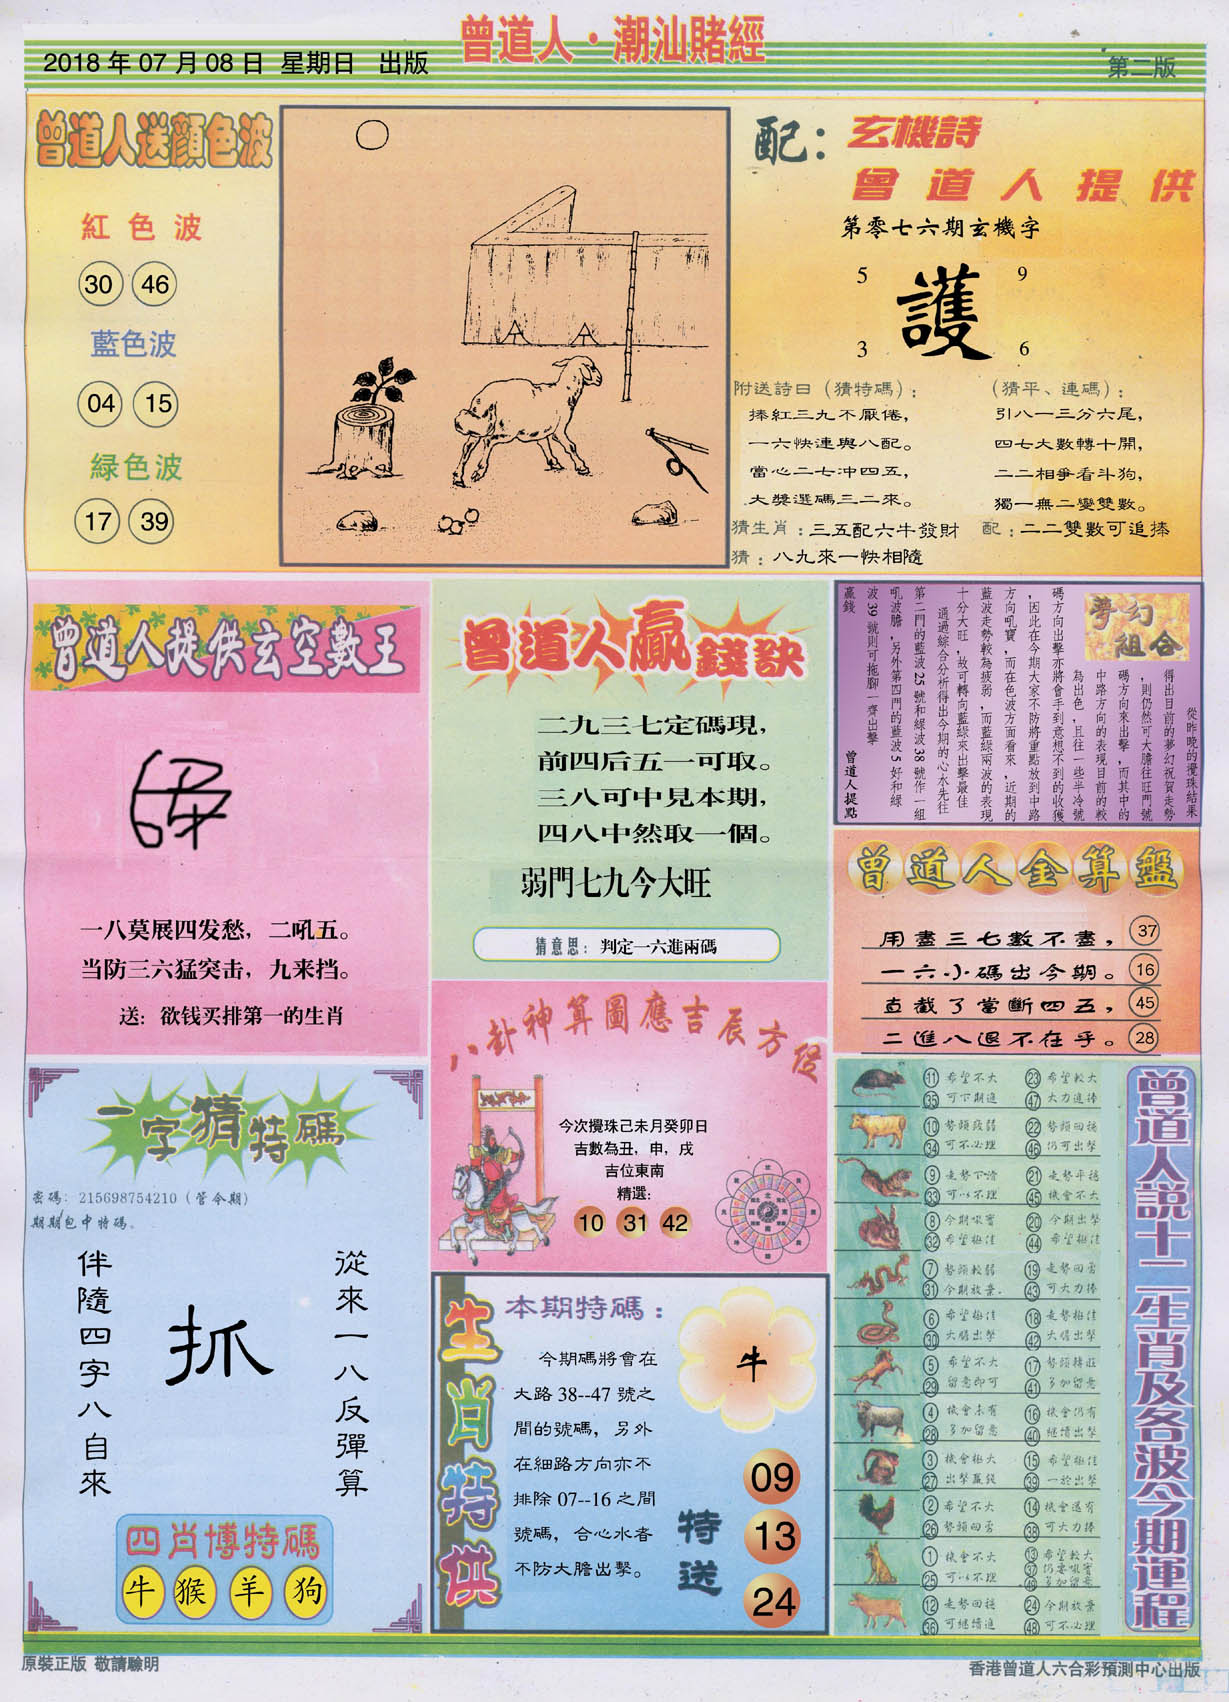 曾道人·潮汕賭經
2018 年 07 月 08 日 星期日 出版
第二版
曾道人送顏色波
紅色波
30 46
藍色波
04 15
緑色波
17 39
配：
玄機詩
曾道人提供
第零七六期玄機字
5 9
護
3 6
附送詩曰（猜特碼）：
捧紅三九不厭倦，
一六快連與八配。
當心二七沖四五，
大獎選碼三二來。
（猜平、連碼）：
引八一三分六尾，
四七大數轉十開，
二二相爭看斗狗，
獨一無二變雙數。
猜生肖：三五配六牛發財
配：二二雙數可追捧
猜：八九來一快相隨
曾道人提供玄空數王
一八莫展四发愁，二吼五。
当防三六猛突击，九来挡。
送：欲钱买排第一的生肖
曾道人贏錢訣
二九三七定碼現，
前四后五一可取。
三八可中見本期，
四八中然取一個。
弱門七九今大旺
猜意思：判定一六進兩碼
夢幻組合
從昨晚的攪珠結果
得出目前的夢幻祝賀走勢
，則仍然可大膽往旺門號
碼方向來出擊，而其中的
中路方向的表現目前的較
為出色，且往一些半冷號
碼方向出擊亦將會手到意想不到的收獲
，因此在今期大家不防將重點放到中路
方向吼寶，而在色波方面看來，近期的
藍波走勢較為疲弱，而藍綠兩波的表現
十分大旺，故可轉向藍綠來出擊最佳
通過綜合分析得出今期的心水先往
第二門的藍波 25 號和綠波 38 號作一組
吼波膽，另外第四門的藍波 5 好和綠
波 39 號則可拖腳一齊出擊
贏錢
曾道人提點
曾道人金算盤
用盡三七數不盡， 37
一六小碼出今期。 16
直截了當斷四五， 45
二進八退不在乎。 28
八卦神算圖應吉辰方位
今次攪珠己未月癸卯日
吉數為丑，申，戌
吉位東南
精選：
10 31 42
一字猜特碼
密碼：215698754210（管今期）
期期包中特碼。
從來一八反彈算
抓
伴隨四字八自來
四肖博特碼
牛 猴 羊 狗
生肖特供
本期特碼：
今期碼將會在
大路 38--47 號之
間的號碼，另外
在細路方向亦不
排除 07--16 之間
號碼，合心水者
不防大膽出擊。
牛
特送
09
13
24
曾道人説十二生肖及各波今期運程
11 希望不大 23 希望較大
35 可下期進 47 大力進捧
10 勢頭疲弱 22 勢頭回穩
34 可不必理 46 仍可出擊
9 走勢下滑 21 走勢平穩
33 可以不理 45 機會不大
8 今期吸寶 20 今期出擊
32 希望極佳 44 希望極佳
7 勢頭較弱 19 走勢回勇
31 今期放棄 43 可大力捧
6 希望極佳 18 走勢極佳
30 大膽出擊 42 大膽出擊
5 希望不大 17 勢頭轉旺
29 留意即可 41 多加留意
4 機會未有 16 機會仍有
28 多加留意 40 繼續出擊
3 機會極大 15 希望極佳
27 出擊贏錢 39 一於出擊
2 希望不大 14 機會還有
26 勢頭回勇 38 可大力捧
1 機會不大 13 希望較大
25 可以不理 37 仍要吸寶
49 多加留意
12 走勢回穩 24 今期放棄
36 可繼續進 48 可不必理
原裝正版 敬請驗明
香港曾道人六合彩預測中心出版